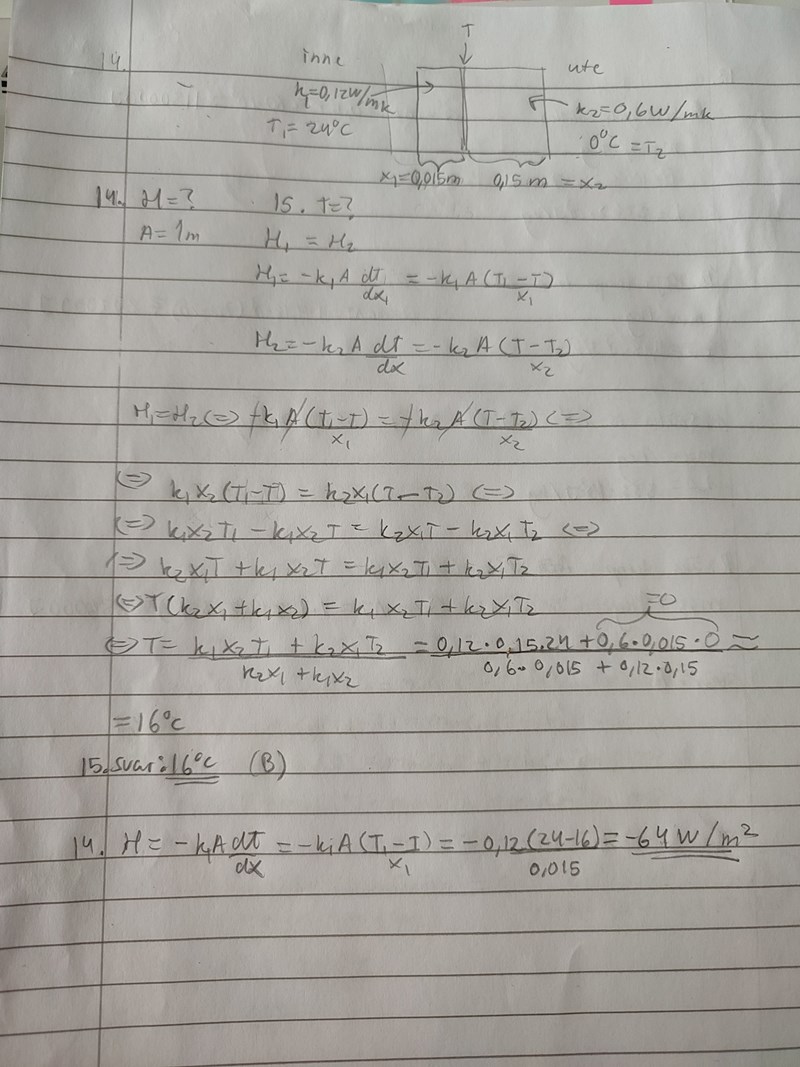 T
14. inne ute
k₁=0,12W/mk k₂=0,6W/mk
T₁= 24°C 0°C =T₂
x₁=0,015m 0,15m =x₂
14. H=? 15. T=?
A=1m H₁ = H₂
H₁= -k₁A dt/dx₁ = -k₁A(T₁-T)/x₁
H₂=-k₂A dt/dx = -k₂A(T-T₂)/x₂
H₁=H₂ <=> -k₁A(T₁-T)/x₁ = -k₂A(T-T₂)/x₂ <=>
<=> k₁x₂(T₁-T) = k₂x₁(T-T₂) <=>
<=> k₁x₂T₁ - k₁x₂T = k₂x₁T - k₂x₁T₂ <=>
<=> k₂x₁T + k₁x₂T = k₁x₂T₁ + k₂x₁T₂
<=> T(k₂x₁+k₁x₂) = k₁x₂T₁ + k₂x₁T₂
=0
<=> T= (k₁x₂T₁ + k₂x₁T₂)/(k₂x₁ + k₁x₂) = (0,12·0,15·24 + 0,6·0,015·0)/(0,6·0,015 + 0,12·0,15) ≈
=16°C
15. svar: 16°C (B)
14. H= -k₁A dt/dx = -k₁A(T₁-T)/x₁ = -0,12(24-16)/0,015 = -64W/m²